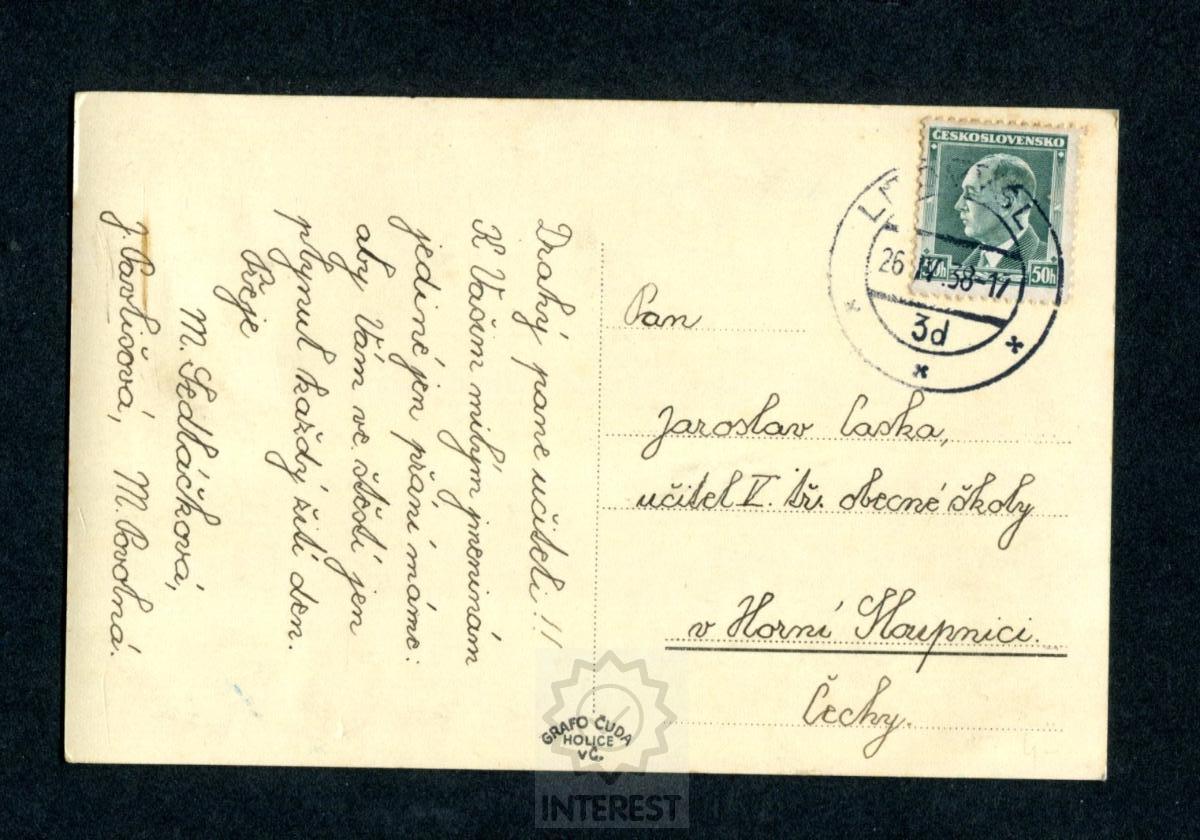 Drahý pane učiteli!!
K Vašim milým jmeninám
jediné jen přání máme:
aby Vám ve štěstí jen
plynul každý žití den.
Přeje
M. Sedláčková,
J. Pavlišová, M. Povolná.
ČESKOSLOVENSKO
50h 50h
26 IV. 38-17
3d
Pan
Jaroslav Caska,
učitel V. tř. obecné školy
v Horní Sloupnici.
Čechy.
GRAFO ČUDA
HOLICE
v Č.
INTEREST